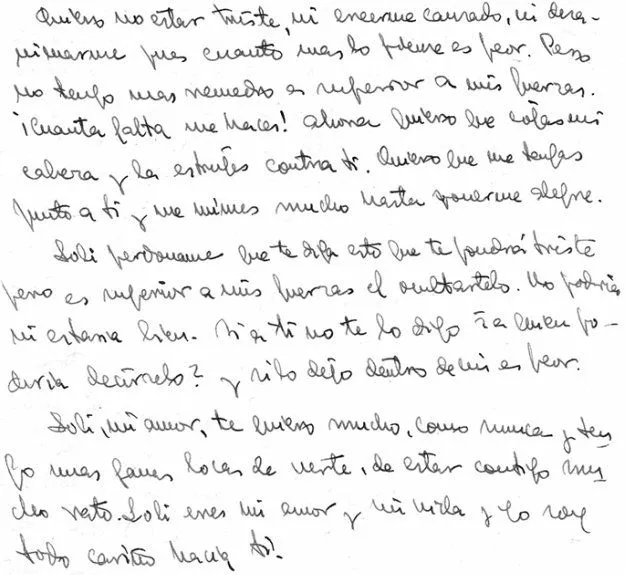 Quiero no estar triste, ni creerme cansado, ni desa-
nimarme pues cuanto mas lo piense es peor. Pero
no tengo mas remedio es superior a mis fuerzas.
¡Cuanta falta me haces! Ahora quiero que cojas mi
cabeza y la estrujes contra ti. Quiero que me tengas
junto a ti y me mimes mucho hasta ponerme alegre.
Loli perdoname que te diga esto que te pondrá triste
pero es superior a mis fuerzas el ocultartelo. No podria
ni estaria bien. Si a ti no te lo digo ¿a quien po-
dria decirselo? y si lo dejo dentro de mi es peor.
Loli, mi amor, te quiero mucho, como nunca y ten
go unas ganas locas de verte, de estar contigo mu
cho rato. Loli eres mi amor y mi vida y yo soy
todo cariño hacia ti.